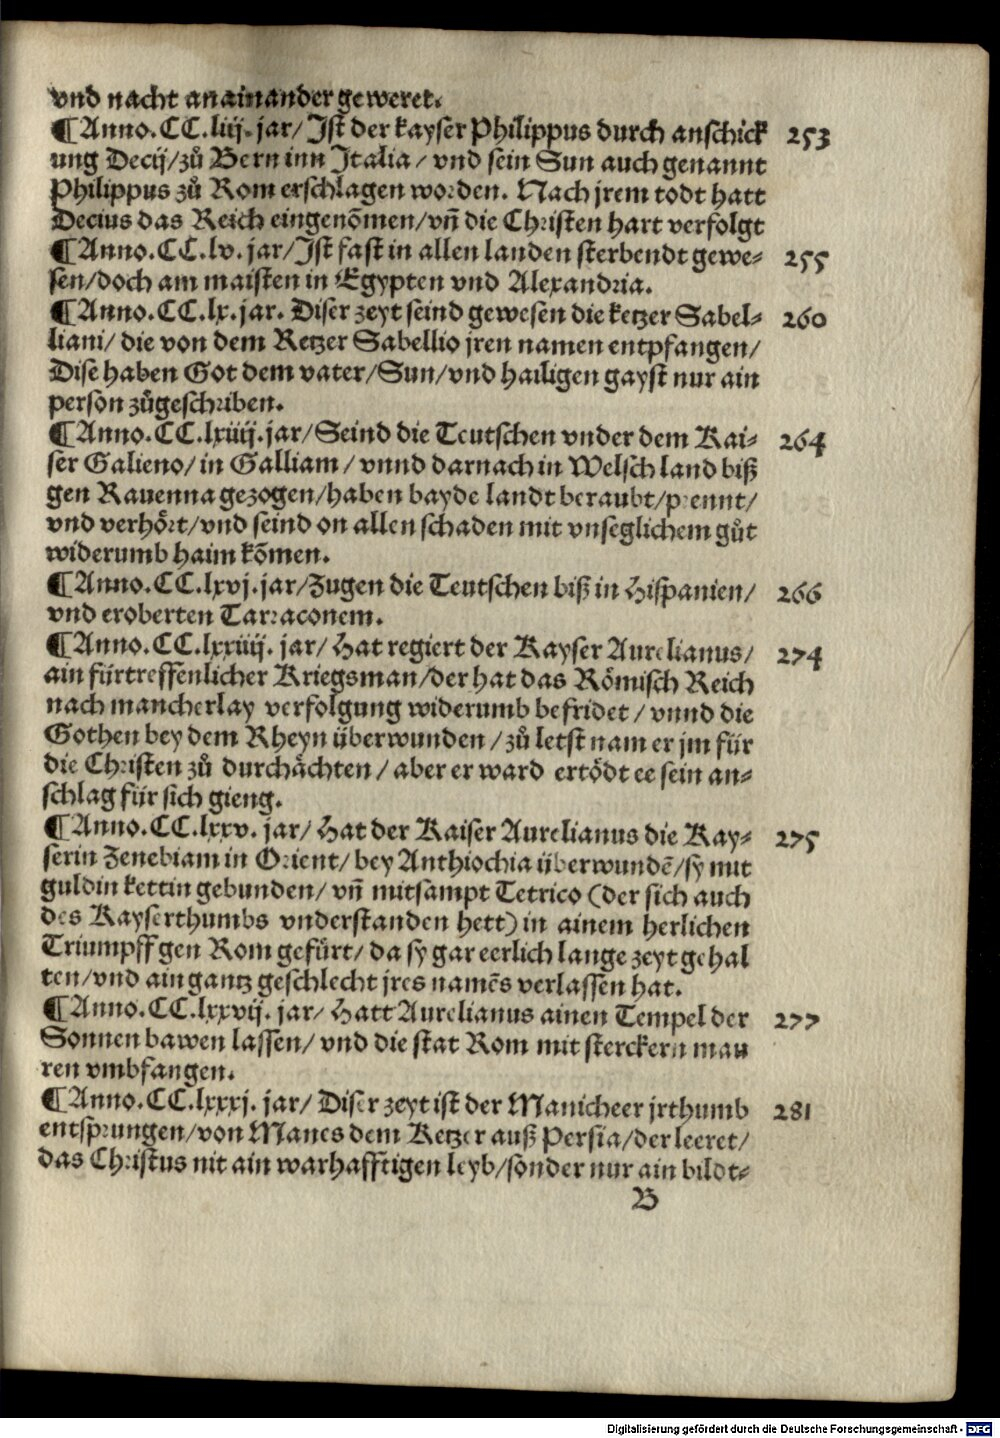 vnd nacht anainander geweret.
¶Anno. CC. liij. jar/ Jst der kayser Philippus durch anschick 253
ung Decij/zů Bern inn Jtalia/ vnd sein Sun auch genannt
Philippus zů Rom erschlagen worden. Nach jrem todt hatt
Decius das Reich eingenõmen/vñ die Christen hart verfolgt
¶Anno. CC. lv. jar/Jst fast in allen landen sterbendt gewe- 255
sen/doch am maisten in Egypten vnd Alexandria.
¶Anno. CC. lx. jar. Diser zeyt seind gewesen die ketzer Sabel- 260
liani/ die von dem Retzer Sabellio jren namen entpfangen/
Dise haben Got dem vater/Sun/vnd hailigen gayst nur ain
person zůgeschriben.
¶Anno. CC. lxiiij. jar/Seind die Teutschen vnder dem Kai- 264
ser Galieno/in Galliam/ vnnd darnach in Welsch land biß
gen Rauenna gezogen/haben bayde landt beraubt/prennt/
vnd verhört/vnd seind on allen schaden mit vnseglichem gůt
widerumb haim kõmen.
¶Anno. CC. lxvj. jar/Zugen die Teutschen biß in Hispanien/ 266
vnd eroberten Tarraconem.
¶Anno. CC. lxxiiij. jar/ Hat regiert der Kayser Aurelianus/ 274
ain fürtreffenlicher Kriegsman/der hat das Römisch Reich
nach mancherlay verfolgung widerumb befridet/ vnnd die
Gothen bey dem Rheyn überwunden/zů letst nam er jm für
die Christen zů durchächten/ aber er ward ertödt ee sein an-
schlag für sich gieng.
¶Anno. CC. lxxv. jar/ Hat der Kaiser Aurelianus die Kay- 275
serin Zenebiam in Orient/ bey Anthiochia überwundẽ/sy mit
guldin kettin gebunden/ vñ mitsampt Tetrico (der sich auch
des Kayserthumbs vnderstanden hett) in ainem herlichen
Triumpff gen Rom gefürt/ da sy gar eerlich lange zeyt gehal
ten/vnd ain gantz geschlecht jres namẽs verlassen hat.
¶Anno. CC. lxxvij. jar/ Hatt Aurelianus ainen Tempel der 277
Sonnen bawen lassen/ vnd die stat Rom mit sterckern mau
ren vmbfangen.
¶Anno. CC. lxxxj. jar/ Diser zeyt ist der Manicheer jrthumb 281
entsprungen/von Manes dem Ketzer auß Persia/der leeret/
das Christus nit ain warhafftigen leyb/sonder nur ain bildt-
B
Digitalisierung gefördert durch die Deutsche Forschungsgemeinschaft - DFG